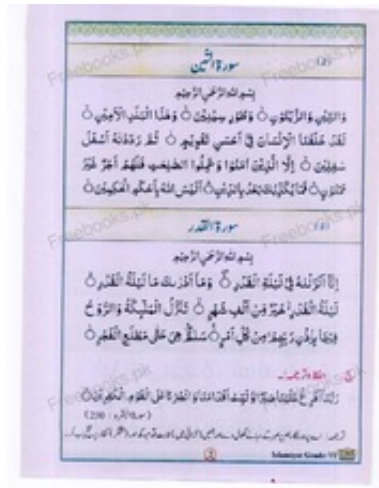 سورۃ التین
بِسْمِ اللهِ الرَّحْمٰنِ الرَّحِيْمِ
وَالتِّيْنِ وَالزَّيْتُوْنِ ۝ وَطُوْرِ سِيْنِيْنَ ۝ وَهٰذَا الْبَلَدِ الْاَمِيْنِ ۝
لَقَدْ خَلَقْنَا الْاِنْسَانَ فِيْٓ اَحْسَنِ تَقْوِيْمٍ ۝ ثُمَّ رَدَدْنٰهُ اَسْفَلَ
سٰفِلِيْنَ ۝ اِلَّا الَّذِيْنَ اٰمَنُوْا وَعَمِلُوا الصّٰلِحٰتِ فَلَهُمْ اَجْرٌ غَيْرُ
مَمْنُوْنٍ ۝ فَمَا يُكَذِّبُكَ بَعْدُ بِالدِّيْنِ ۝ اَلَيْسَ اللهُ بِاَحْكَمِ الْحٰكِمِيْنَ ۝
سورۃ القدر
بِسْمِ اللهِ الرَّحْمٰنِ الرَّحِيْمِ
اِنَّآ اَنْزَلْنٰهُ فِيْ لَيْلَةِ الْقَدْرِ ۝ وَمَآ اَدْرٰىكَ مَا لَيْلَةُ الْقَدْرِ ۝
لَيْلَةُ الْقَدْرِ خَيْرٌ مِّنْ اَلْفِ شَهْرٍ ۝ تَنَزَّلُ الْمَلٰٓئِكَةُ وَالرُّوْحُ
فِيْهَا بِاِذْنِ رَبِّهِمْ مِّنْ كُلِّ اَمْرٍ ۝ سَلٰمٌ هِيَ حَتّٰى مَطْلَعِ الْفَجْرِ ۝
رَبَّنَآ اَفْرِغْ عَلَيْنَا صَبْرًا وَّثَبِّتْ اَقْدَامَنَا وَانْصُرْنَا عَلَى الْقَوْمِ الْكٰفِرِيْنَ ۝
(سورۃ البقرہ : 250)
Islamiyat Grade-VI
Freebooks.pk